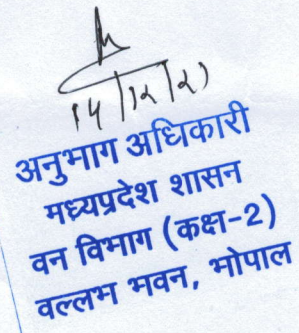 14/12/21
अनुभाग अधिकारी
मध्यप्रदेश शासन
वन विभाग (कक्ष-2)
वल्लभ भवन, भोपाल